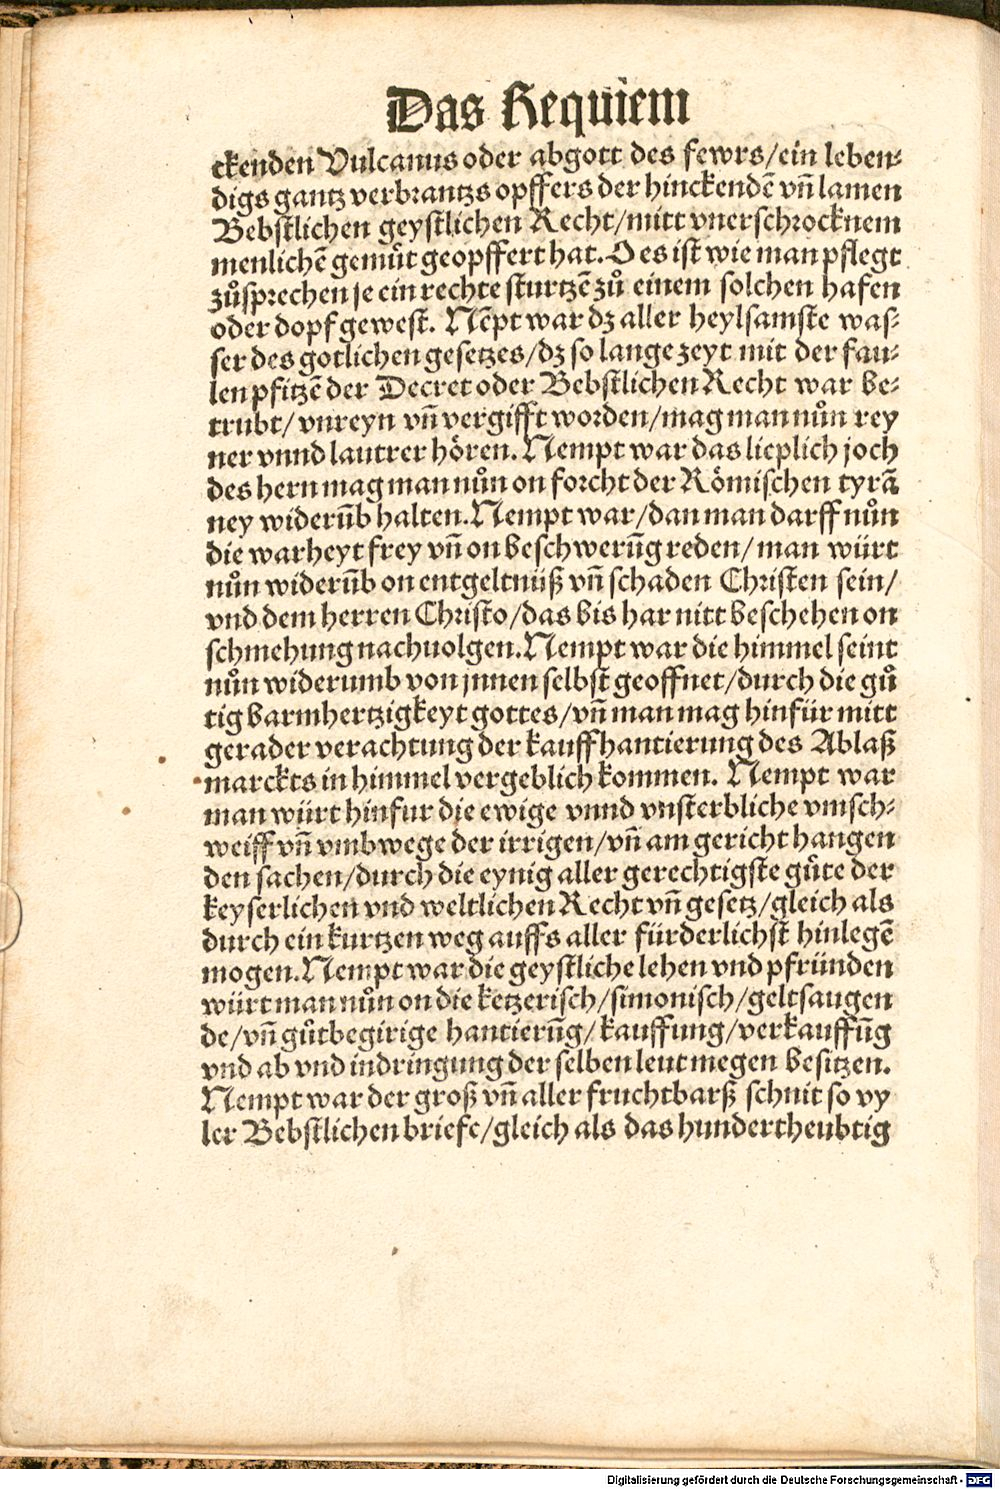 Das Requiem
ckenden Vulcanus oder abgott des fewrs/ein leben⸗
digs gantz verbrantzs opffers der hinckendẽ vñ lamen
Bebstlichen geystlichen Recht/mitt vnerschrocknem
menlichẽ gemuͤt geopffert hat. O es ist wie man pflegt
zuͦsprechen je ein rechte sturtzẽ zuͦ einem solchen hafen
oder dopf gewest. Nẽpt war dz aller heylsamste was⸗
ser des gotlichen gesetzes/dz so lange zeyt mit der fau⸗
len pfitzẽ der Decret oder Bebstlichen Recht war be⸗
trubt/vnreyn vñ vergifft worden/mag man nuͦn rey
ner vnnd lautrer hoͤren. Nempt war das lieplich joch
des hern mag man nuͦn on forcht der Roͤmischen tyrã
ney widerũb halten. Nempt war/dan man darff nuͦn
die warheyt frey vñ on beschwerũg reden/man wuͤrt
nuͦn widerũb on entgeltnuͤß vñ schaden Christen sein/
vnd dem herren Christo/das bis har nitt beschehen on
schmehung nachuolgen. Nempt war die himmel seint
nuͦn widerumb von jnnen selbst geoffnet/durch die guͤ
tig barmhertzigkeyt gottes/vñ man mag hinfuͤr mitt
gerader verachtung der kauffhantierung des Ablaß
marckts in himmel vergeblich kommen. Nempt war
man wuͤrt hinfur die ewige vnnd vnsterbliche vmsch⸗
weiff vñ vmbwege der irrigen/vñ am gericht hangen
den sachen/durch die eynig aller gerechtigste guͤte der
keyserlichen vnd weltlichen Recht vñ gesetz/gleich als
durch ein kurtzen weg auffs aller fuͤrderlichst hinlegẽ
mogen. Nempt war die geystliche lehen vnd pfruͤnden
wuͤrt man nuͦn on die ketzerisch/simonisch/geltsaugen
de/vñ guͦtbegirige hantierũg/kauffung/verkauffũg
vnd ab vnd indringung der selben leut megen besitzen.
Nempt war der groß vñ aller fruchtbarß schnit so vy
ler Bebstlichen briefe/gleich als das hundertheubtig
Digitalisierung gefördert durch die Deutsche Forschungsgemeinschaft - DFG